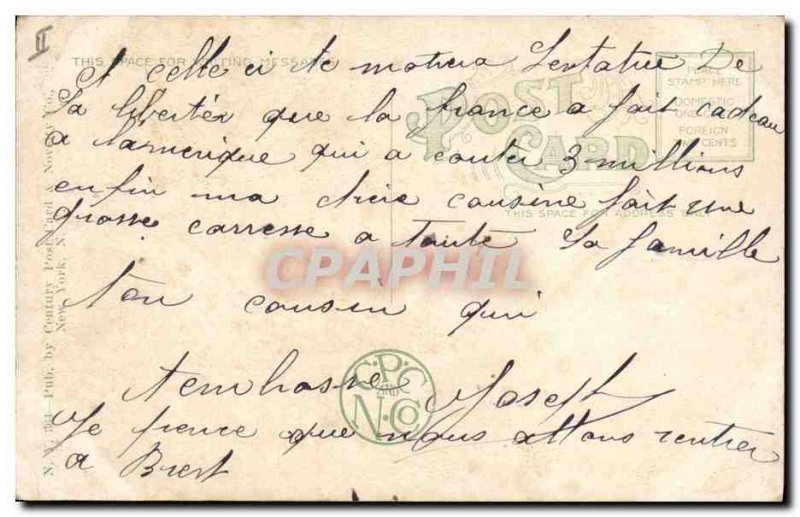 II
THIS SPACE FOR WRITING MESSAGE
POST CARD
PLACE
STAMP HERE
DOMESTIC
ONE CENT
FOREIGN
CENTS
THIS SPACE FOR ADDRESS ONLY
et celle ci te motrera lentatue De
la liberter que la france a fait cadeau
a lamerique qui a couter 3 millions
enfin ma chére cousine fait une
grosse carresse a toute la famille
ton cousin qui
t'embrasse Joseph
Je pence que nous allons rentrer
a Brest
CPAPHIL
C.P.C. AND N.Co
Pub. by Century Post Card & Novelty Co.,
New York, N.Y.